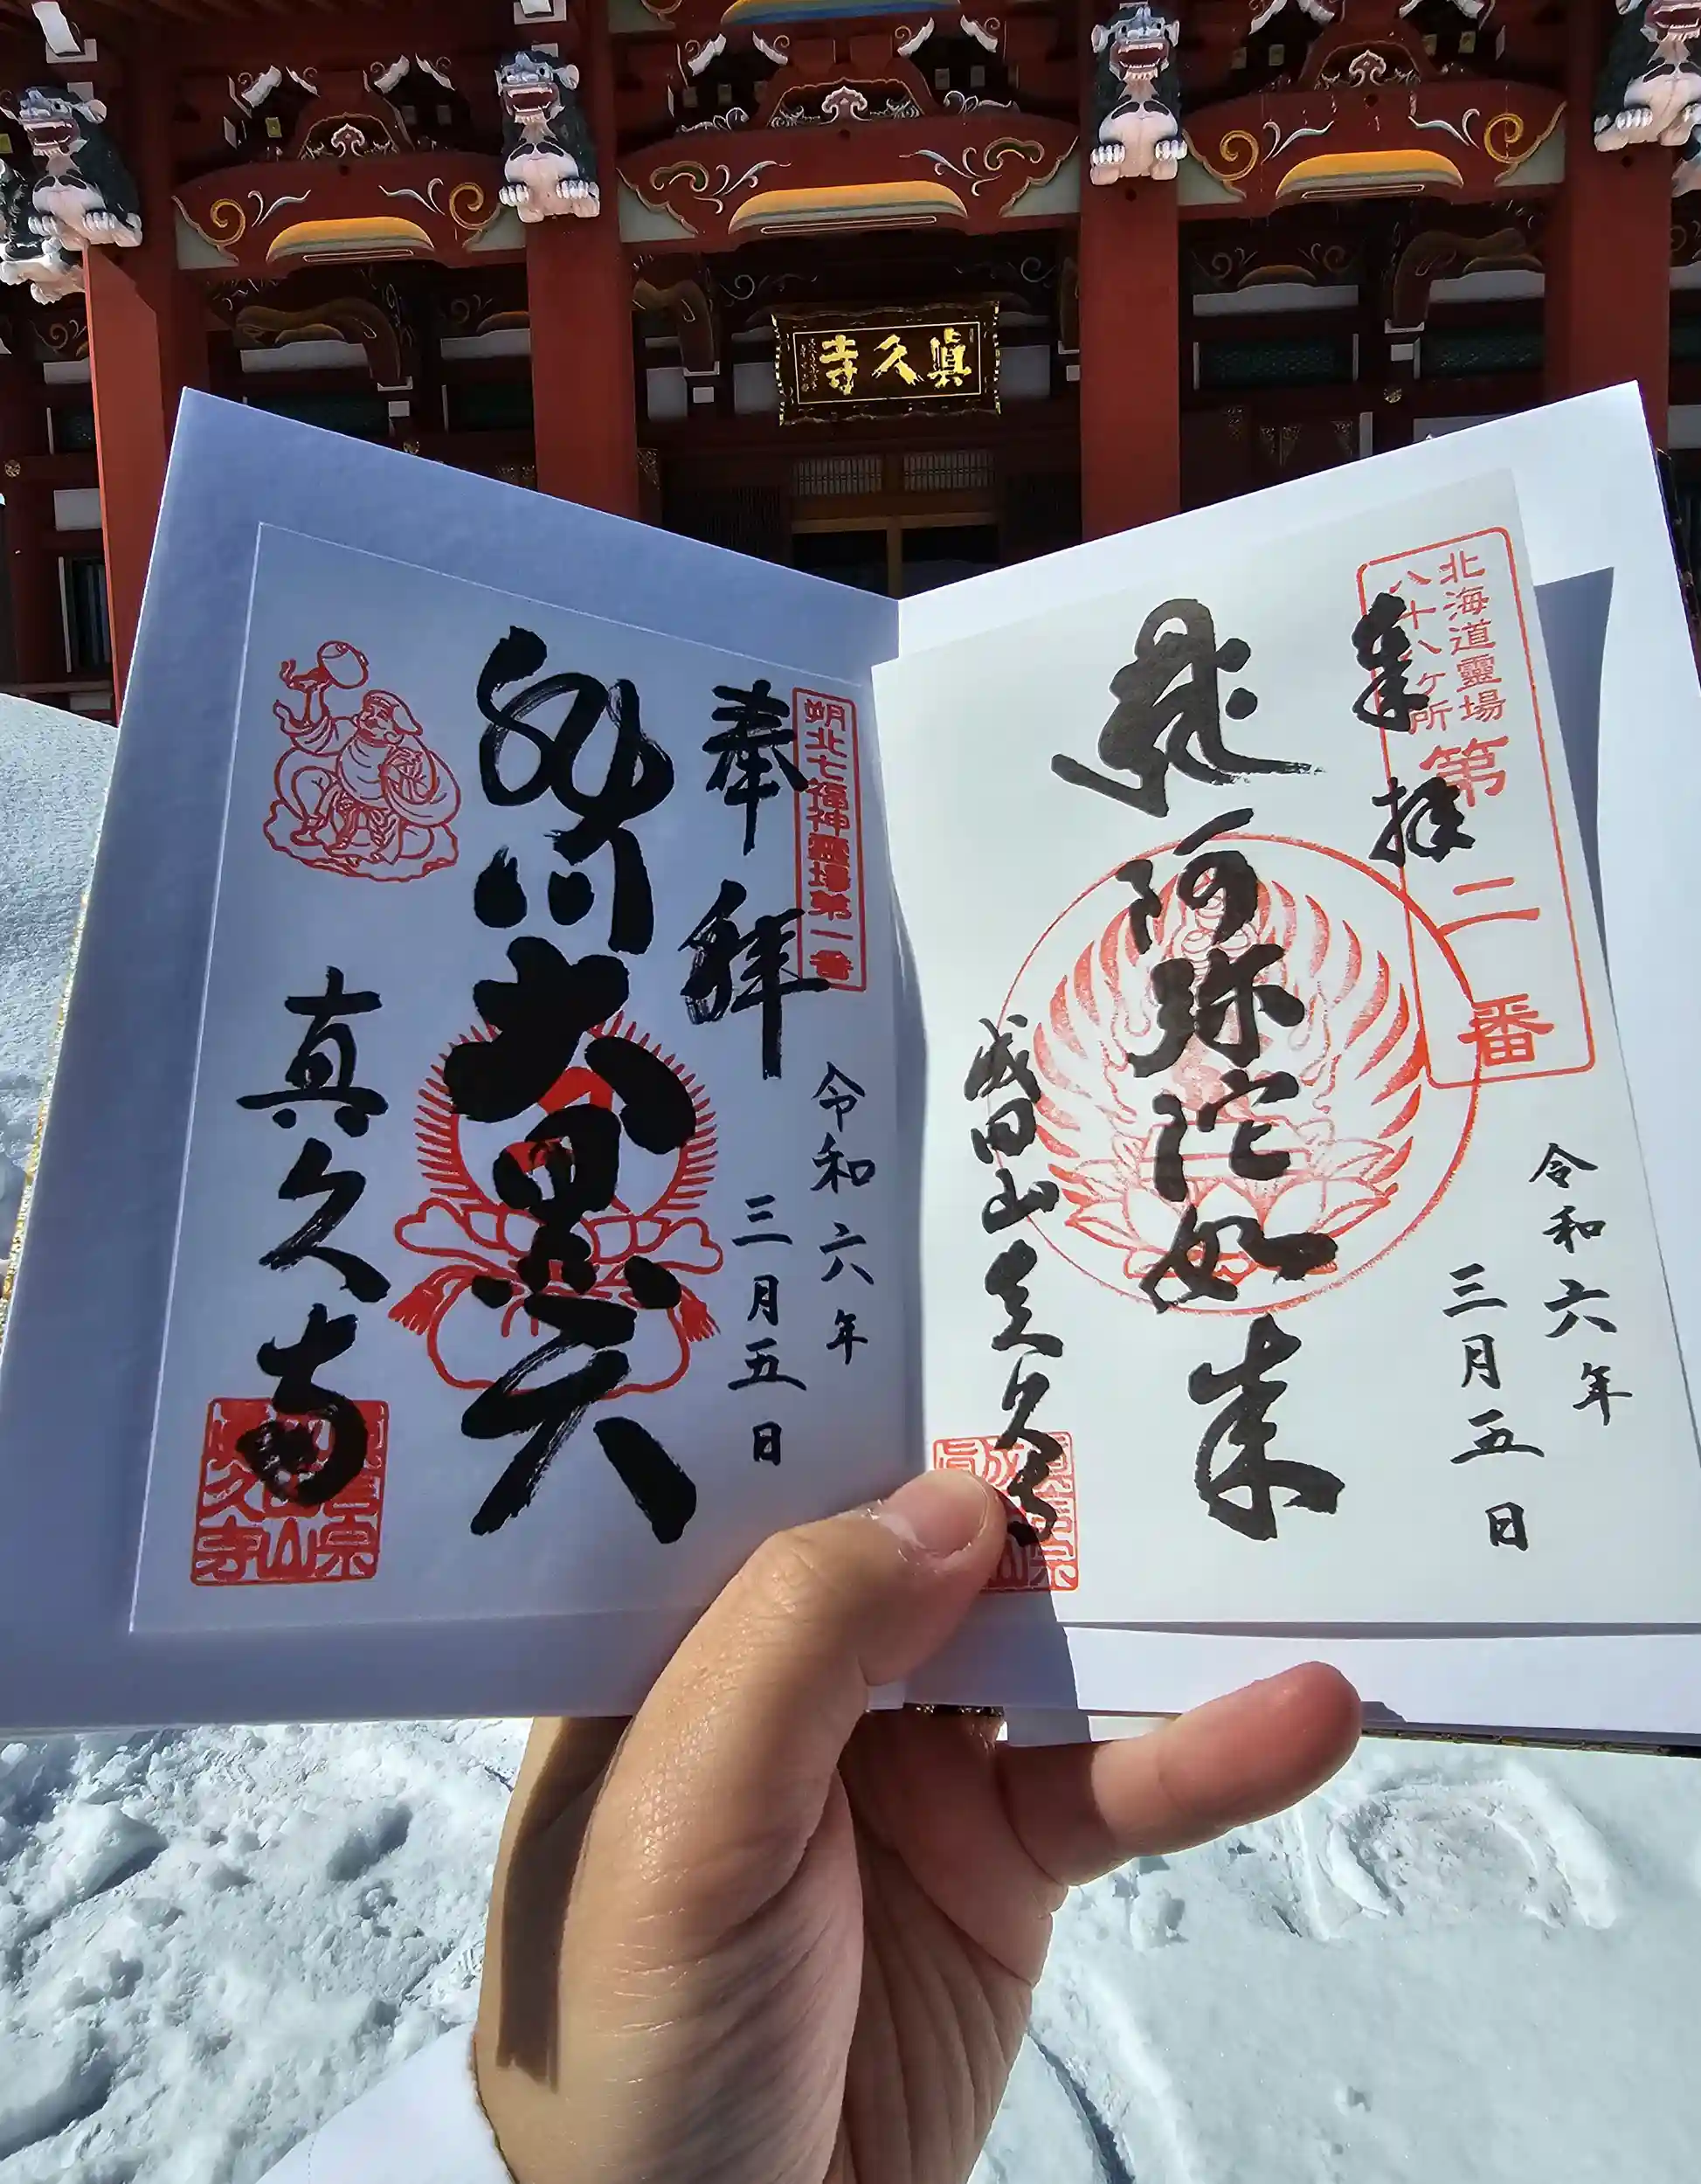 眞久寺
奉拝
北海道靈場
八十八ヶ所
第二番
令和六年
三月五日
阿弥陀如来
成田山真久寺
朔北七福神靈場第一番
奉拝
令和六年
三月五日
大黒天
真久寺